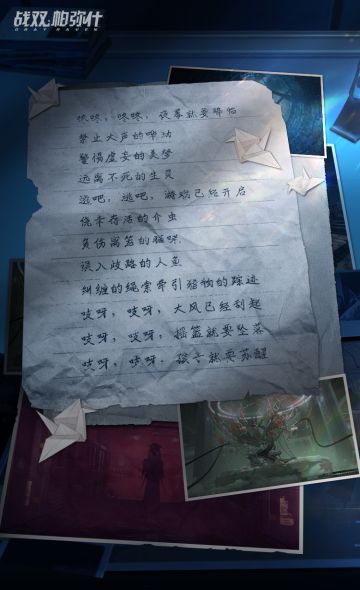 战双帕弥什
GRAY RAVEN
咚咚，咚咚，夜幕就要降临
禁止大声的哗动
警惕虚妄的美梦
远离不死的生灵
逃吧，逃吧，游戏已经开启
侥幸存活的介虫
负伤离笼的猫咪
误入歧路的人鱼
纠缠的绳索牵引猎物的踪迹
吱呀，吱呀，大风已经刮起
吱呀，吱呀，摇篮就要坠落
吱呀，吱呀，孩子就要苏醒